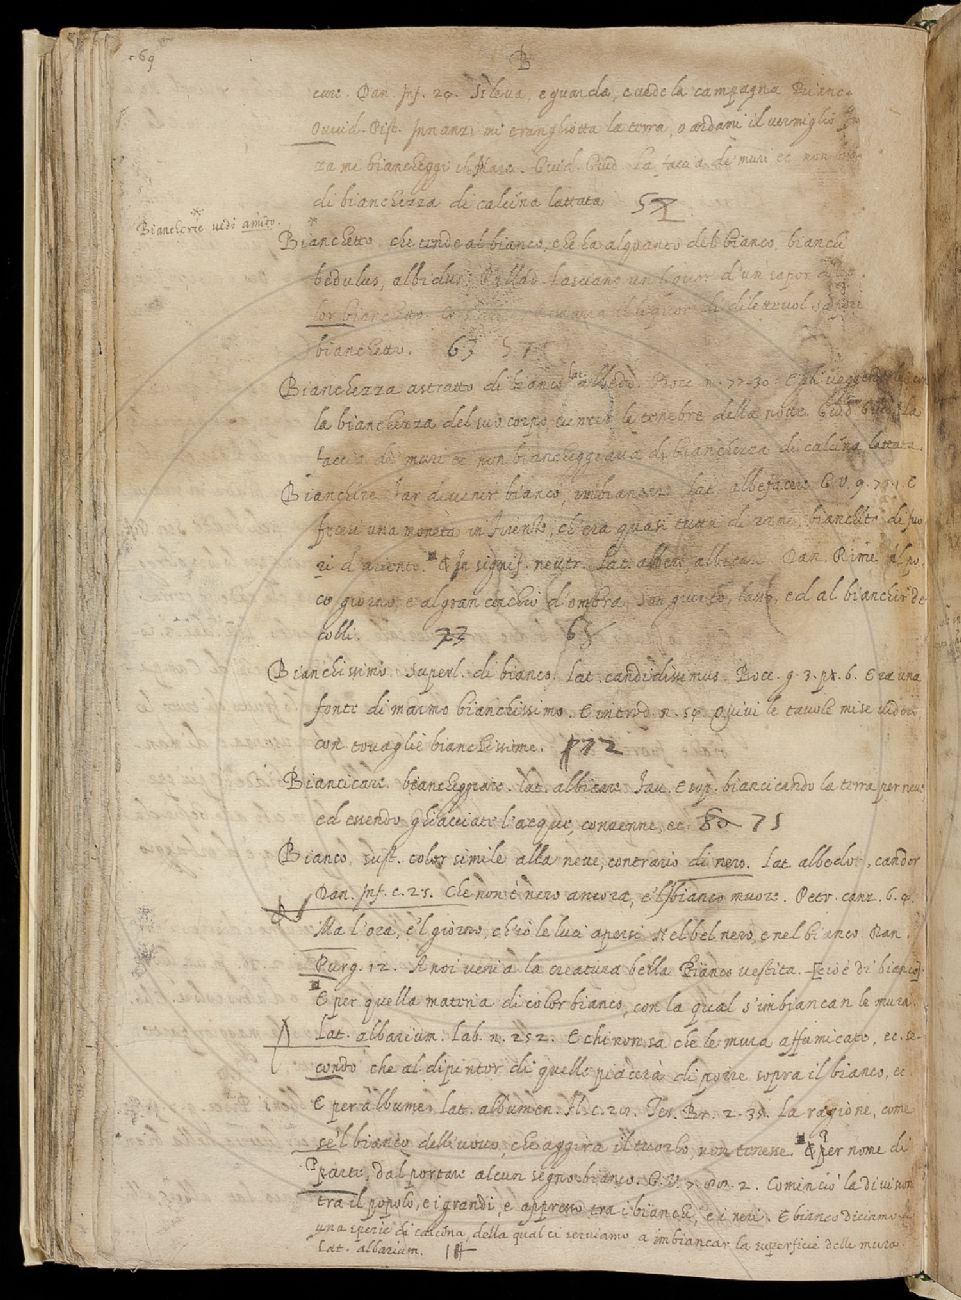 69
B
care. Dan. Inf. 24. Si leva, e guarda, e vede la campagna Bianc.
Ovvid. Pist. Innanzi mi tranghiotta la terra, o ardami il vermiglio
mi biancheggi il Mare. Guid. Giud. La faccia de muri ec. non
di bianchezza di calcina lattata 57
Biancherie vedi amito.
Bianchetto, che tende al bianco, che ha alquanto del bianco, bianchi
bedulus, albidus. Pallad. Lasciano un liquor d'un sapor
lor bianchetto.
bianchetto. 63 57
Bianchezza astratto di bianco lat. albedo. Bocc. n. 77. 30. veggendo
la bianchezza del suo corpo, vincere le tenebre della notte. Guid. Giud. La
faccia de muri ec. non biancheggiava di bianchezza di calcina lattata.
Bianchire far divenir bianco, imbiancare lat. albefacere G. V. 9. E
fecesi una moneta in Firenze, ch'era quasi tutta di rame, bianchita di fuo
ri d'ariento. & In signif. neutr. Lat. albere, Dan. Rime Al po.
co giorno, e al gran cerchio d'ombra, Son giunto, lasso, ed al bianchir de
colli. 73 65
Bianchissimo. Superl. di bianco. Lat. candidissimus. Bocc. g. 3. p. 6. Era una
fonte di marmo bianchissimo. E introd. n. 54. Quivi le tavole mise videro
con tovaglie bianchissime. 112
Biancicare. biancheggiare. lat. albicare. Fav. Esop. biancicando la terra per neve
ed essendo ghiacciate l'acque, convenne, ec. 80 75
Bianco, sust. color simile alla neve, contrario di nero. Lat. albedo, candor
Dan. Inf. c. 25. Che non è nero ancora, e 'l bianco muore. Petr. canz. 6. 9.
Ma l'ora, e 'l giorno, ch'io le luci apersi Nel bel nero, e nel bianco Dan.
Purg. 12. A noi venia la creatura bella Bianco vestita. [cioè di bianco]
E per quella materia di color bianco, con la qual s'imbiancan le mura.
Lat. albarium. Lab. n. 252. E chi non sa che le mura affumicate, ec. se-
condo che al dipintor di quelle piacerà di porre sopra il bianco, ec.
E per albume. Lat. albumen. Tes. Br. 2. 35. La ragione, come
se'l bianco dell'uovo, che aggira il tuorlo, non tenesse & per nome di
parte, dal portare alcun segno bianco. G. V. 7. 2. Cominciò la division
tra il popolo, e i grandi, e appresso tra i bianchi, e i neri. E bianco diciamo
una spezie di calcina, della qual ci serviamo a imbiancar la superficie delle mura.
Lat. albarium. 14